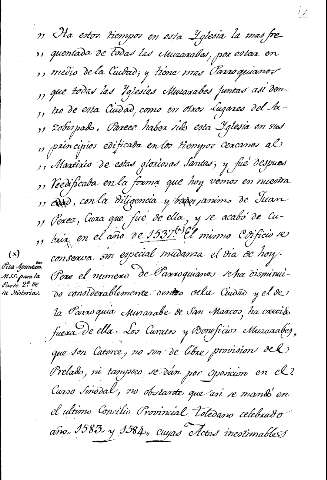 " Ha estos tiempos en esta Iglesia la mas fre
" quentada de todas las Muzarabes, por estar en
" medio de la Ciudad, y tiene mas Parroquianos
" que todas las Iglesias Muzarabes juntas asi den
" tro de esta Ciudad, como en otros lugares del Ar
" zobispado. Parece haber sido esta Iglesia en sus
" principios edificada en los tiempos cercanos al
" Martirio de estas gloriosas Santas; y fué despues
" reedificada en la forma que hoy vemos en nuestra
" edad, con la diligencia y buen animo de Juan
" Perez, Cura que fué de ella, y se acabó de Cu
" brir en el año de 1537. El mismo edificio se
conserva sin especial mudanza el dia de hoy.
Pero el numero de Parroquianos se ha disminui
do considerablemente dentro de la Ciudad y el de
la Parroquia Muzarabe de San Marcos ha crecido
fuera de ella. Los Curatos y Beneficios Muzarabes,
que son Catorce, no son de libre provision del
Prelado, ni tampoco se dan por oposicion en el
Curso Sinodal, no obstante que asi se mandó en
el ultimo Concilio Provincial Toledano celebrado
año 1583 y 1584, cuyas Actas inestimables
(x)
Pisa
M.SS. para la
Parte 2ª de
su Historia.